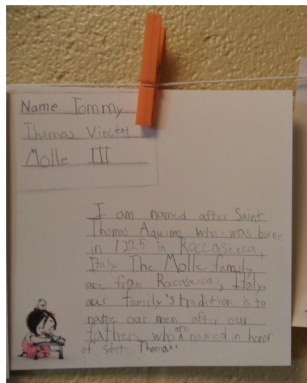 Name Tommy
Thomas Vincent
Molle III
I am named after Saint
Thomas Aquinas who was born
in 1225 in Roccasecca,
Italy. The Molle family
are from Roccasecca, Italy.
our family's tradition is to
name our men after our
father who are named in honor
of saint Thomas.